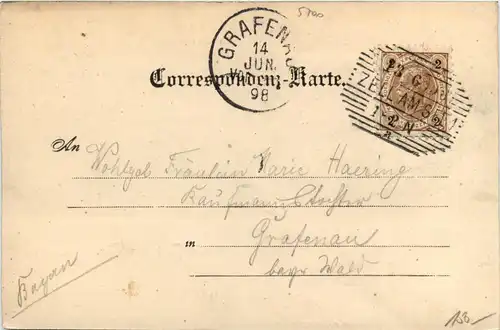 5700
GRAFENAU
14
JUN.
VM
98
Correspondenz-Karte.
2 2
13 6
ZELL AM S
2 2
An Wohlgeb Fräulein Marie Haering
Kaufmannstochter
in Grafenau
bayr Wald
Bayern
150